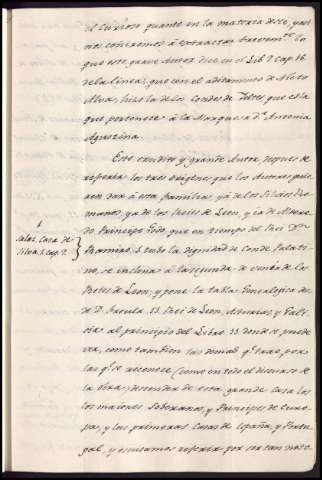 el curioso quanto en la materia desee, y assi
nos ceñiremos à extractar brevem.te lo
que este grave Autor dice en el Lib. 7. cap. 16.
de la linea, que con el aditamento de
Alva, hizo la de los Condes de Feltes que es la
que pertenece à la Marquesa d.a Antonia
Agustina.
Este erudito y grande Autor, despues de
referir los tres origenes que los Autores quie
ren dar à esta familia; yà de los Silvios Ro
manos, ya de los Reies de Leon, y ia de Aldere
do Principe Godo, que en tiempo del Rey D.n
Ramiro 3. tubo la dignidad de Conde Palati
no, se inclina à la segunda de
Reies de Leon, y pone la tabla Genealogica de
de D. Fruela 2.º Rei de Leon, Asturias, y Gali
cia al principio del Libro 2.º donde se puede
ver, como tambien las demas q.e trae, por
las q.e se reconoce (como en todo el discurso de
la obra) descender de esta grande casa los
los maiores Soberanos, y Principes de Euro
pa, y las primeras Casas de España, y Portu
gal, y escusamos referir por ser tan noto
Salaz. Casa de
Silva l. cap. 2.